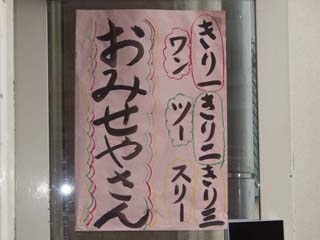 きり一きり二きり三
ワン ツー スリー
おみせやさん